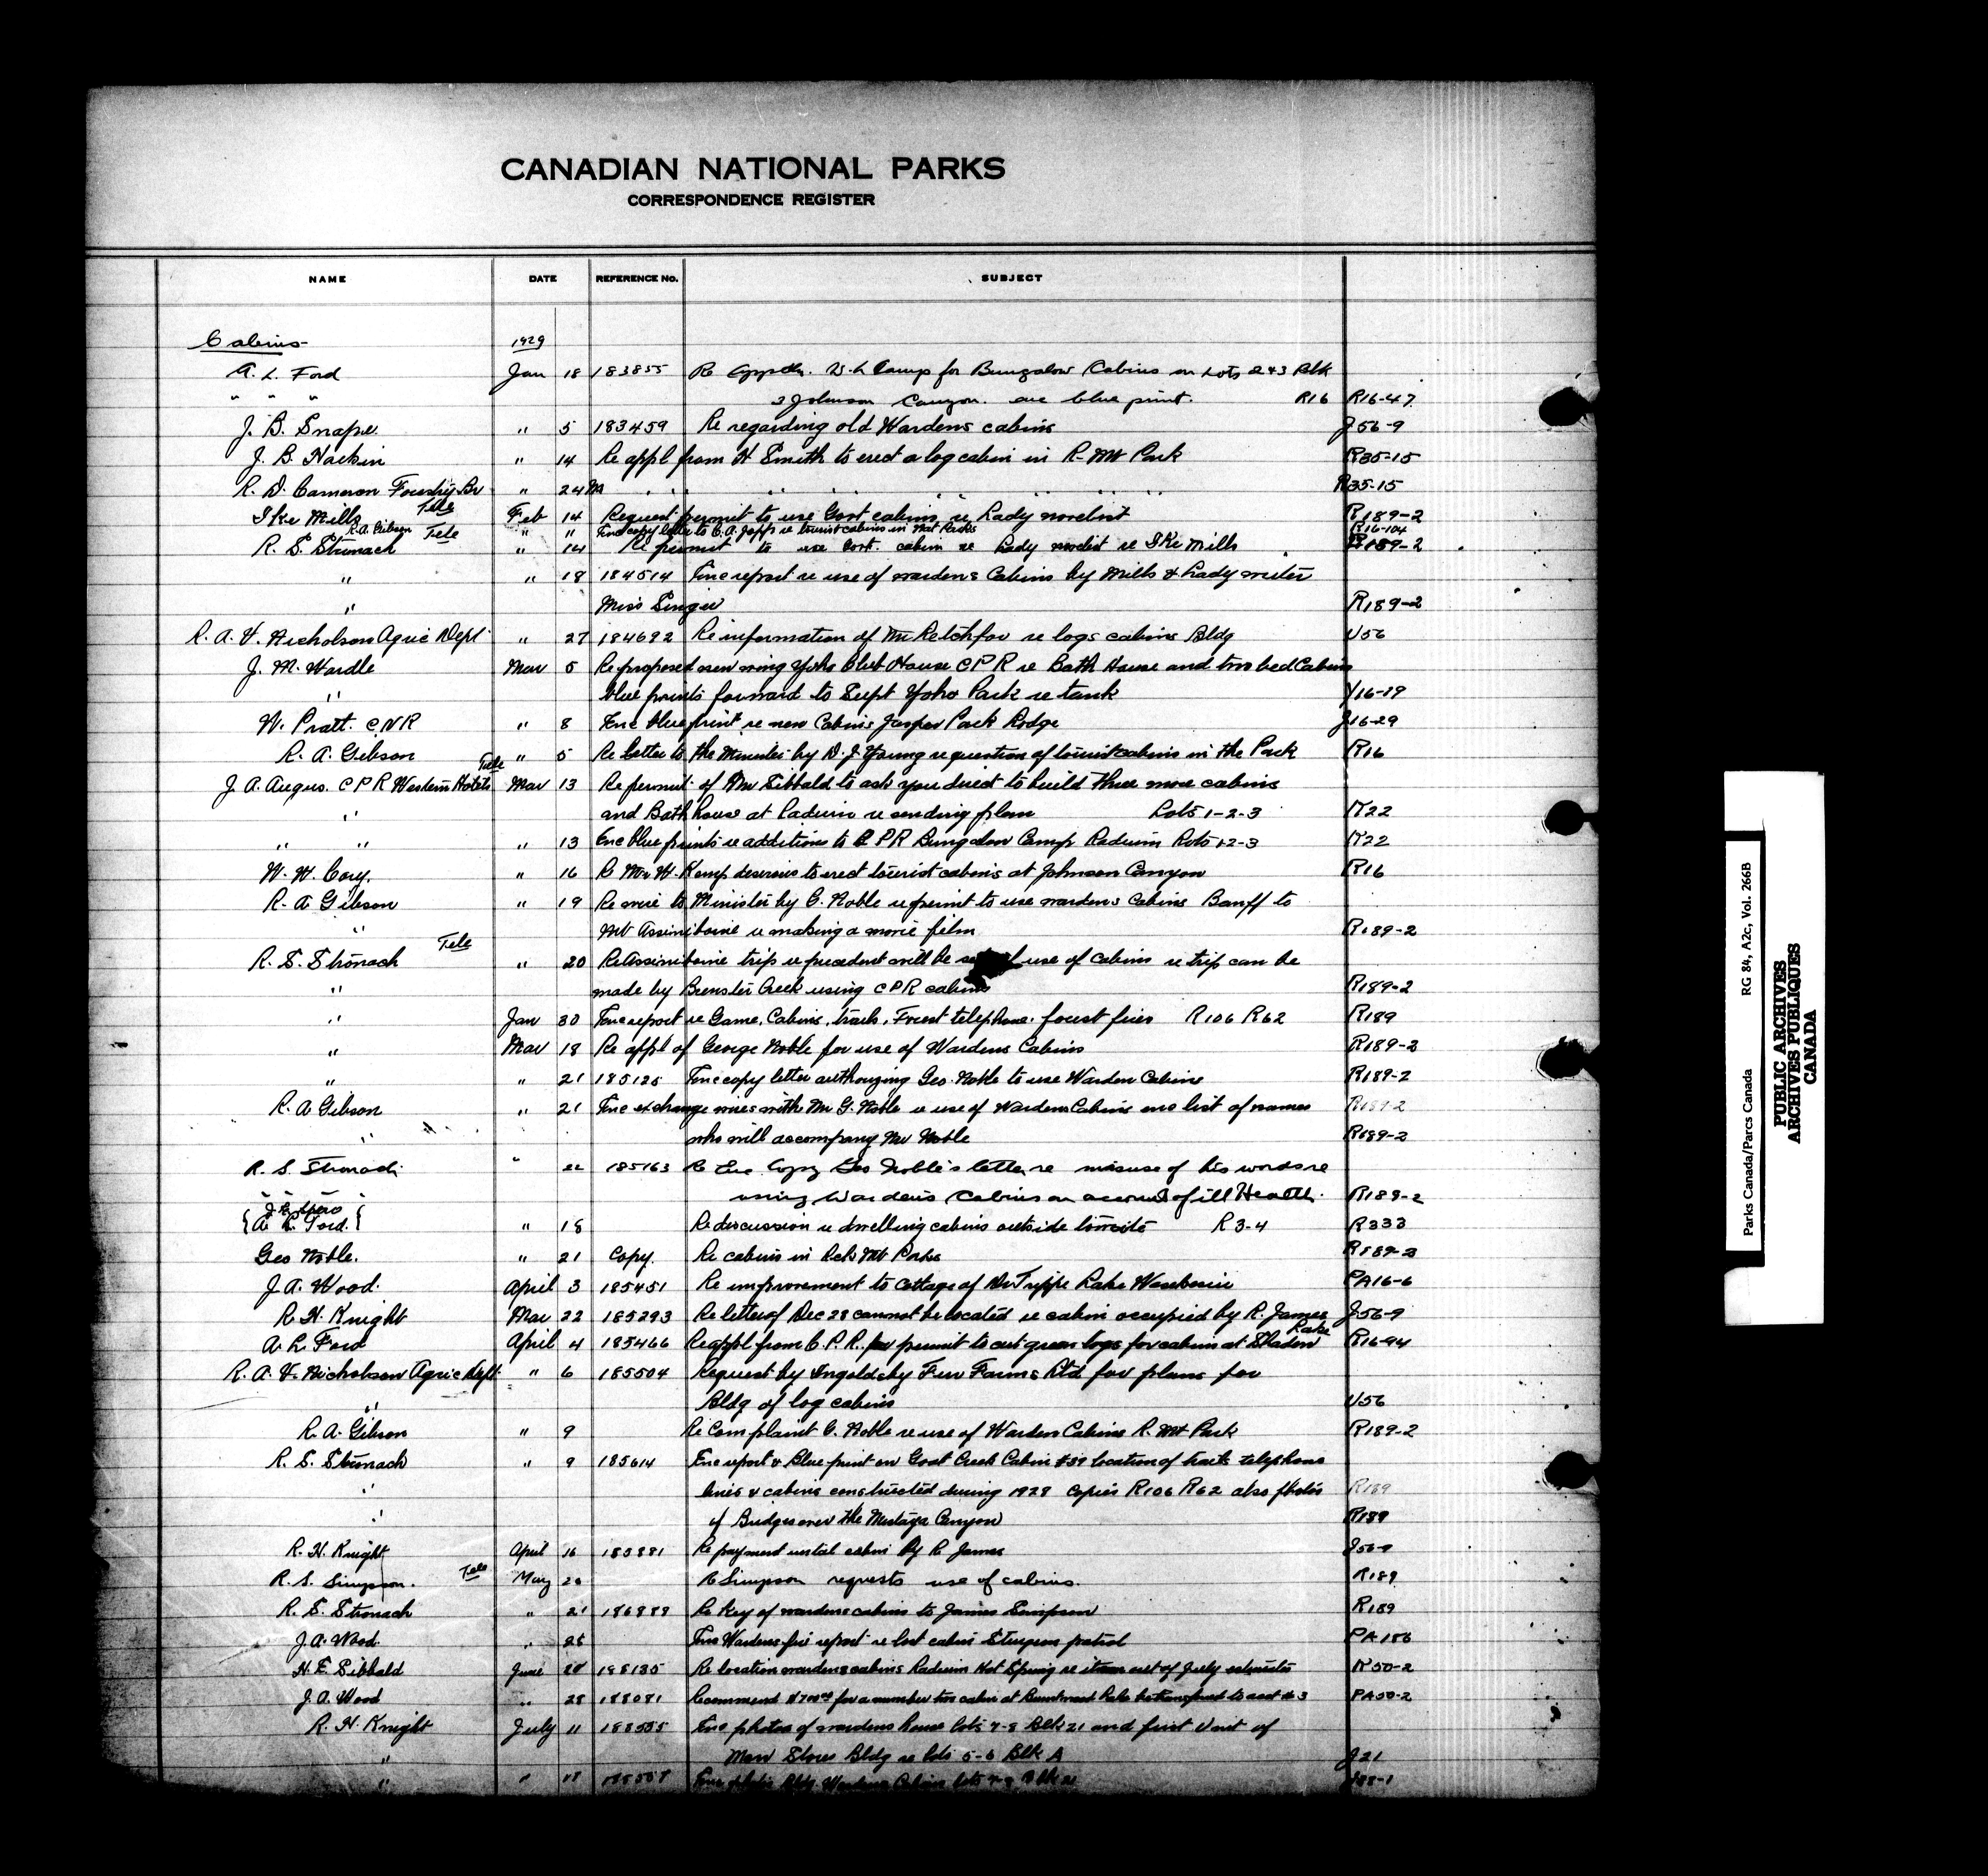 CANADIAN NATIONAL PARKS
CORRESPONDENCE REGISTER
NAME DATE REFERENCE No. SUBJECT
Cabins 1929
A. L. Ford Jan 18 183855 Re W. H Camp for Bungalow Cabins on Lots 2 & 3 Blk
" " " 3 Johnson Canyon. blue print. R16 R16-47
J. B. Snape " 5 183459 Re regarding old Wardens cabins J56-9
J. B. Harkin " 14 Re appl from H Smith to erect a log cabin in R. Mt Park R35-15
R. D. Cameron Forestry Br " 24 R35-15
Ike Mills Tele Feb 14 Request permit to use Govt cabins re Lady novelist R189-2
R. A. Gibson Tele " " Enc copy letter to re tourist cabins in Nat Parks R16-104
R. S. Stronach " 14 Re permit to use Govt. cabin re Lady novelist re Ike Mills R189-2
" " 18 184514 Enc report re use of wardens Cabins by Mills & Lady writer
" Miss Singer R189-2
R. A. V. Nicholson Agric Dept " 27 184692 Re information of Mr re logs cabins Bldg U56
J. M. Wardle Mar 5 Re proposed new wing Yoho Club House C P R re Bath House and two bed Cabins
" blue prints forward to Supt Yoho Park re tank Y16-19
W. Pratt. C N R " 8 Enc blue print re new Cabins Jasper Park Lodge J16-29
R. A. Gibson " 5 Re Letter to the Minister by D. J Young re question of tourist cabins in the Park R16
J. A. Augus. C P R Western Hotels Tele Mar 13 Re permit of Mr Sibbald to ask you direct to build three more cabins
" and Bath house at Radium re sending plans Lots 1-2-3 K22
" " " 13 Enc blue prints re additions to C P R Bungalow Camp Radium Lots 1-2-3 K22
W. W. Cory. " 16 Re Mr W. Kamp desirous to erect tourist cabins at Johnson Canyon R16
R. A Gibson " 19 Re wire to Minister by G. Noble re permit to use wardens Cabins Banff to
" Mt Assiniboine re making a movie film R189-2
R. S. Stronach Tele " 20 Re Assiniboine trip re precedent will be use of cabins re trip can be
" made by Brewster Creek using C P R cabins R189-2
" Jan 30 Enc report re Game, Cabins, trails, Forest telephone. forest fires R106 R62 R189
" Mar 18 Re appl of George Noble for use of Wardens Cabins R189-2
" " 21 185125 Enc copy letter authorizing Geo. Noble to use Warden Cabins R189-2
R. A Gibson " 21 Enc exchange wires with Mr G. Noble re use of Wardens Cabins enc list of names R189-2
" who will accompany Mr Noble R189-2
R. S. Stronach " 22 185163 Re Enc Copy Geo Noble's letter re misuse of his words re
using Wardens Cabins on account of ill Health. R189-2
A. L. Ford. " 18 Re discussion re dwelling cabins outside townsite R3-4 R333
Geo Noble. " 21 Copy. Re cabins in Rcky Mt Parks R189-2
J. A. Wood. April 3 185451 Re improvement to cottage of Mr Trippe Lake Waskesiu PA16-6
R. H. Knight Mar 22 185293 Re letter of Dec 28 cannot be located re cabin occupied by R. James J56-9
A. L. Ford April 4 185466 Re appl from C. P. R. for permit to cut green logs for cabin at Shadow Lake R16-94
R. A. V. Nicholson Agric Dept " 6 185504 Request by Ingoldsby Fur Farms Ltd for plans for
" Bldg of log cabins U56
R. A. Gibson " 9 Re Complaint G. Noble re use of Warden Cabins R. Mt Park R189-2
R. S. Stronach " 9 185614 Enc report & Blue print on Goat Creek Cabin #39 location of trails telephone
" lines & cabins constructed during 1928 Copies R106 R62 also photos R189
" of Bridges over the Mistaya Canyon R189
R. H. Knight April 16 185881 Re payment rental cabin by R James J56-9
R. S. Simpson. Tele May 20 Re Simpson requests use of cabins. R189
R. S. Stronach " 21 186989 Re key of wardens cabins to James Simpson R189
J. A. Wood. " 25 Enc Wardens fire report re lost cabin Sturgeon patrol PA186
H. E. Sibbald June 28 188135 Re location wardens cabins Radium Hot Spring re item out of July estimates K50-2
J. A. Wood " 28 188081 Recommend for a number two cabin at Lake be transferred to #3 PA50-2
R. H. Knight July 11 188505 Enc photos of wardens house lots 7-8 Blk 21 and first Unit of
" Men Stores Bldg re lots 5-6 Blk A J21
" " Enc photo Bldg Wardens Cabin lots 7-8 Blk 21
Parks Canada/Parcs Canada RG 84, A2c, Vol. 266B
PUBLIC ARCHIVES
ARCHIVES PUBLIQUES
CANADA